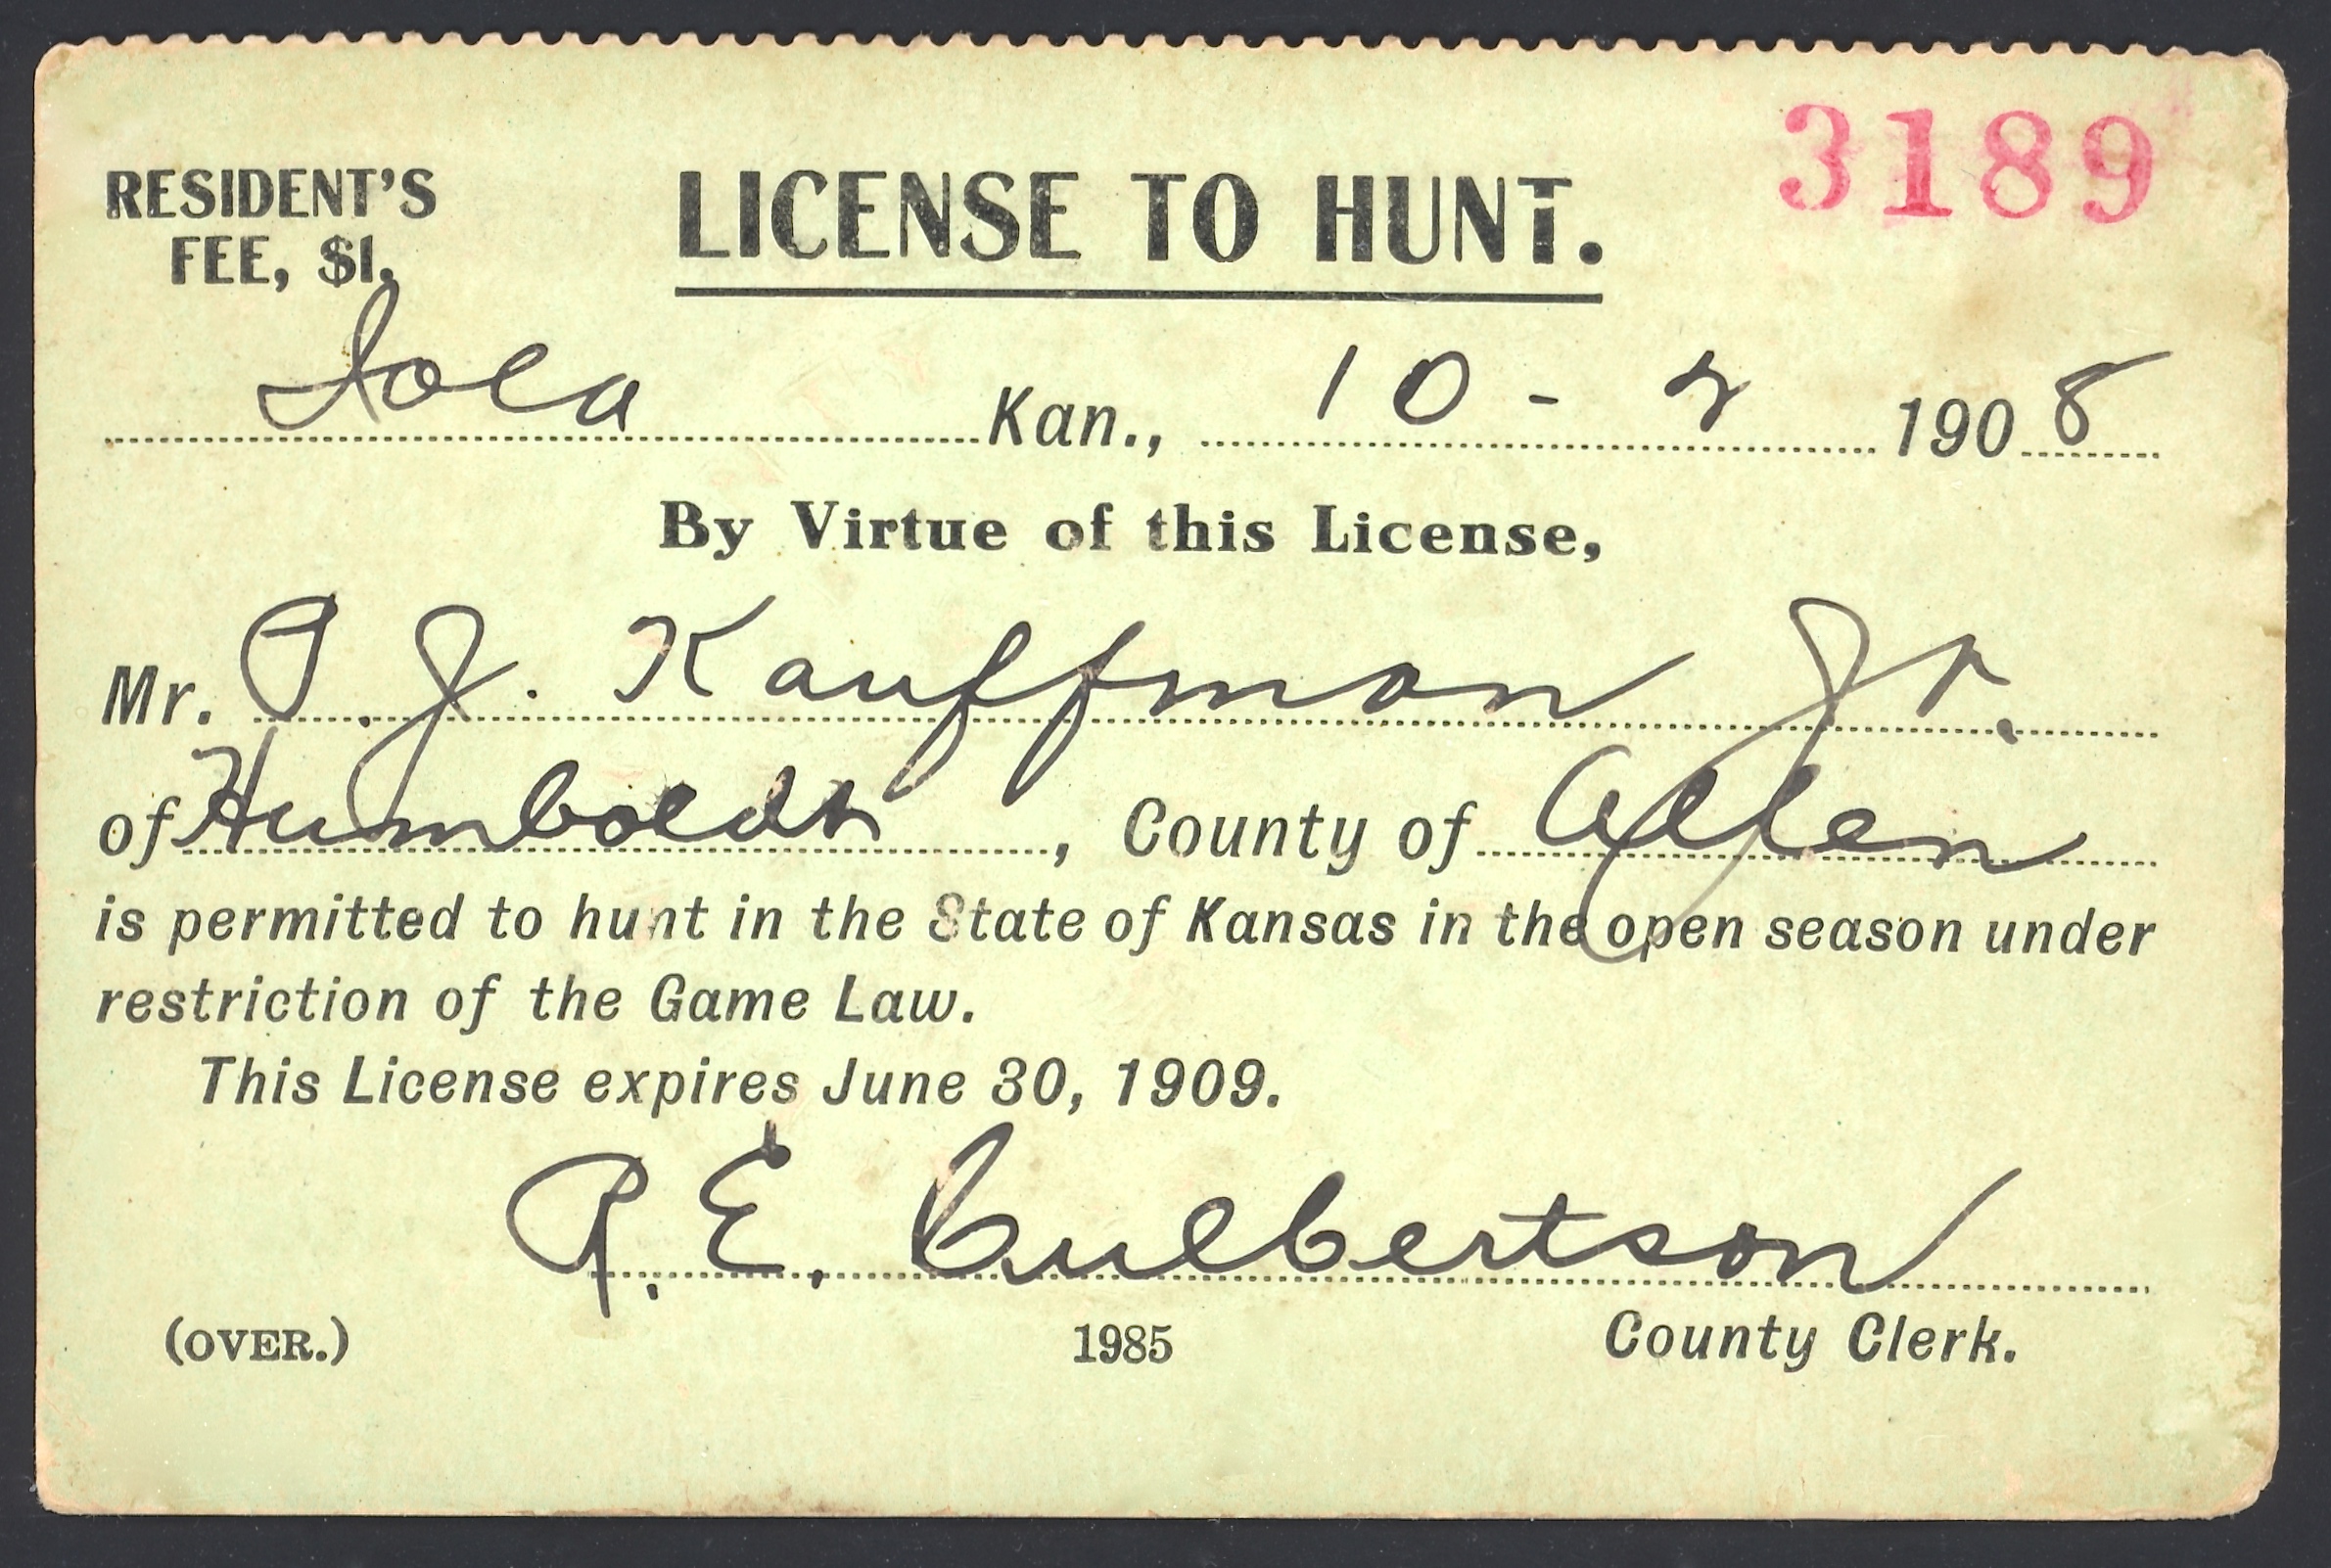 3189
RESIDENT'S
FEE, $1.
LICENSE TO HUNT.
Iola Kan., 10 - 2 1908
By Virtue of this License,
Mr. P. J. Kauffman Jr.
of Humboldt, County of Allen
is permitted to hunt in the State of Kansas in the open season under
restriction of the Game Law.
This License expires June 30, 1909.
R. E. Culbertson
(OVER.) 1985 County Clerk.